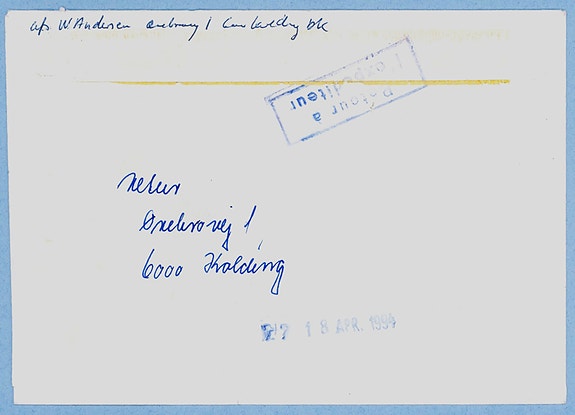 afs. W Andersen Ørebrovej 1 6000 Kolding DK
Retour à
l'expéditeur
retur
Ørebrovej 1,
6000 Kolding
18 APR. 1994